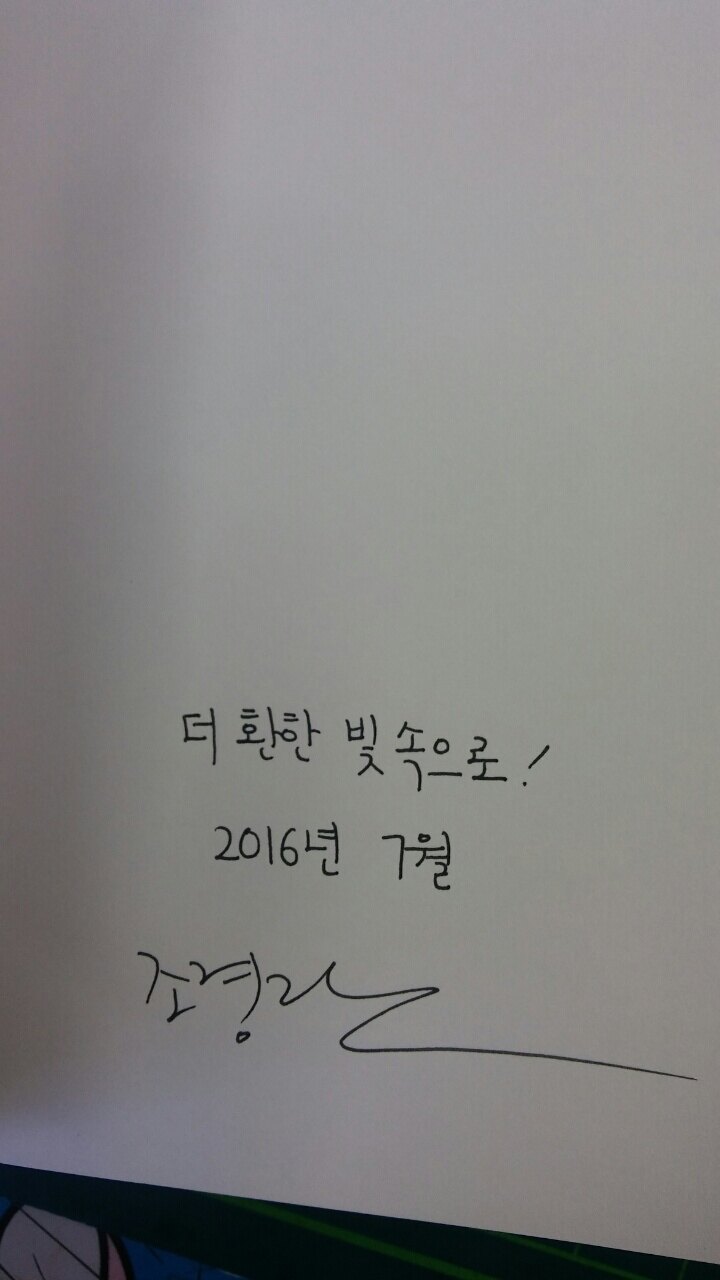 더 환한 빛 속으로!
2016년 7월